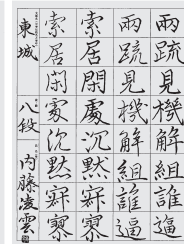 兩疏見機解組誰逼
兩疏見機解組誰逼
索居閑處沉默寂寥
索居閑處沉默寂寥
東城 八段 内藤凌雲